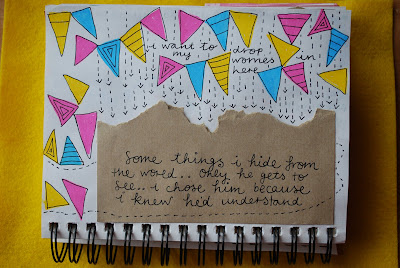 i want to drop in
my worries here
Some things i hide from
the world.. Only he gets to
See.. i chose him because
i knew he'd understand